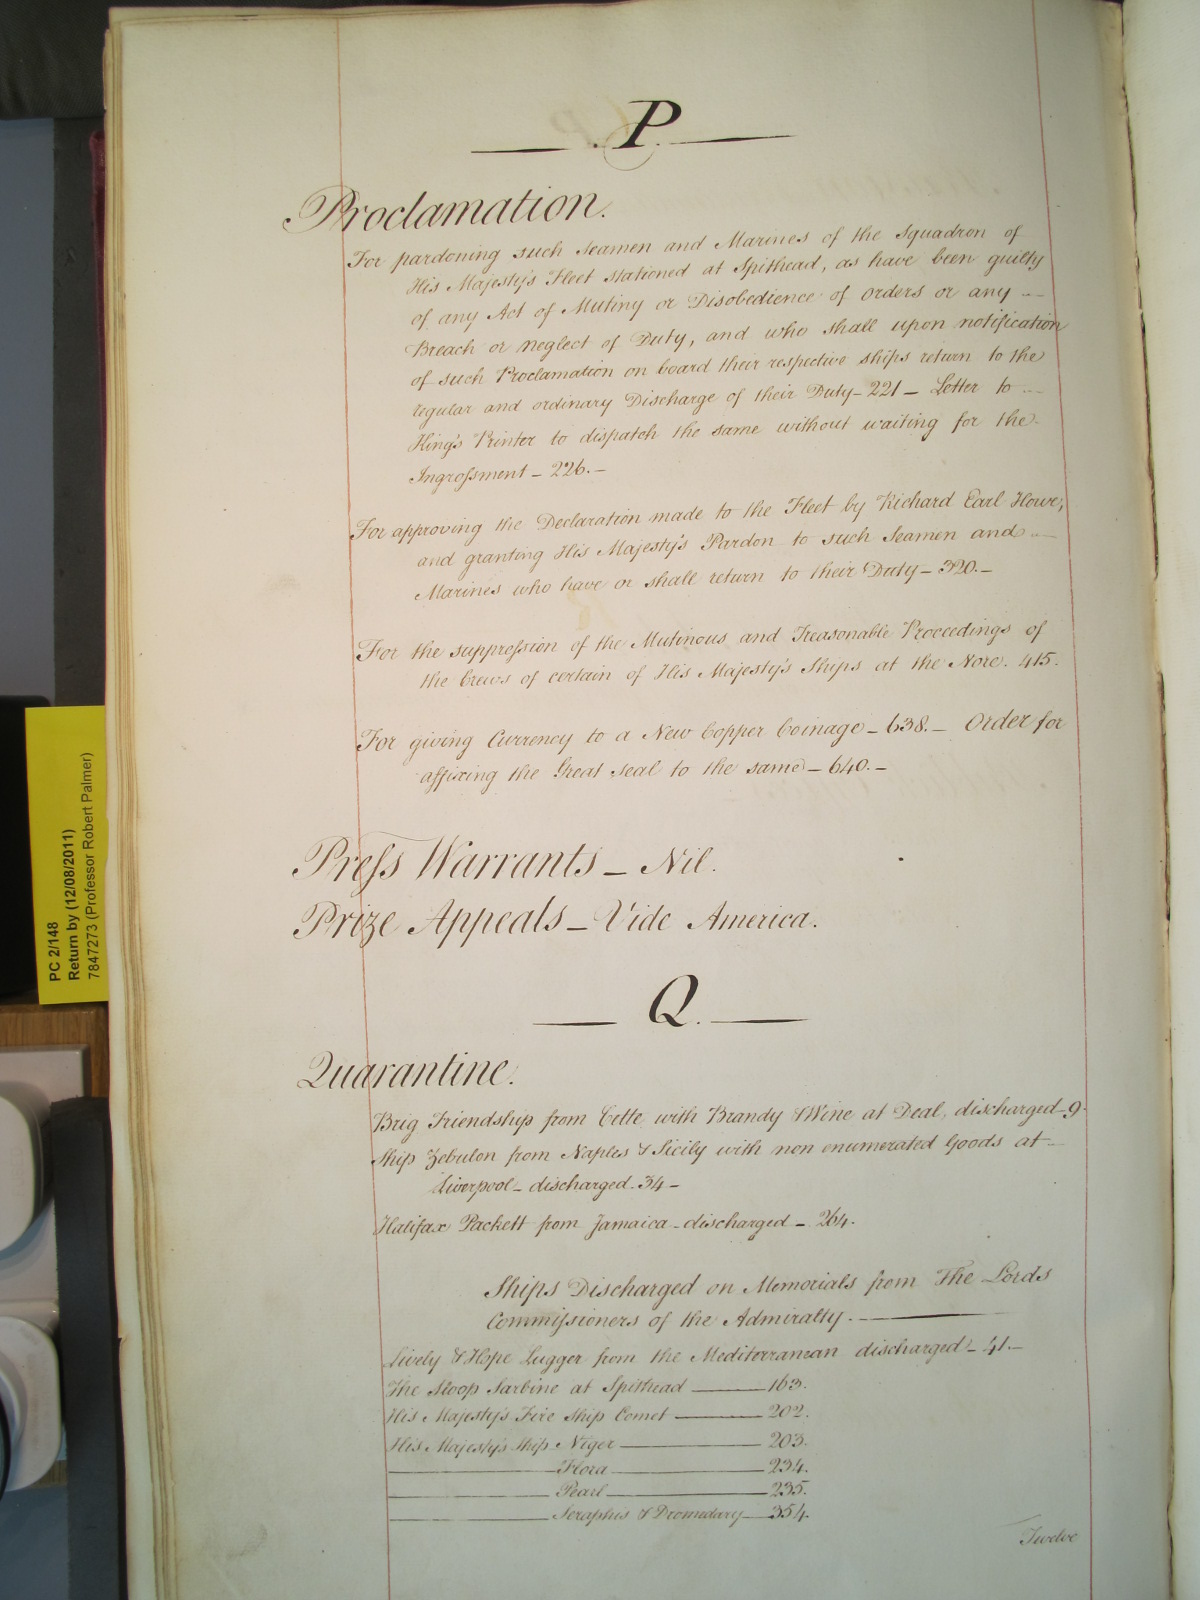 P.
Proclamation.
For pardoning such Seamen and Marines of the Squadron of
His Majesty's Fleet stationed at Spithead, as have been guilty
of any Act of Mutiny or Disobedience of Orders or any --
Breach or neglect of Duty, and who shall upon notification
of such Proclamation on board their respective ships return to the
regular and ordinary Discharge of their Duty - 221 - Letter to --
King's Printer to dispatch the same without waiting for the -
Ingrossment - 226. -
For approving the Declaration made to the Fleet by Richard Earl Howe,
and granting His Majesty's Pardon to such Seamen and --
Marines who have or shall return to their Duty - 320. -
For the suppression of the Mutinous and Treasonable Proceedings of
the Crews of certain of His Majesty's Ships at the Nore. 415.
For giving Currency to a New Copper Coinage - 638. - Order for
affixing the Great Seal to the same - 640. -
Press Warrants - Nil.
Prize Appeals - Vide America.
Q.
Quarantine.
Brig Friendship from Cette with Brandy & Wine at Deal, discharged - 9 -
Ship Zebulon from Naples & Sicily with non enumerated Goods at -
Liverpool - discharged - 34 -
Halifax Packett from Jamaica - discharged - 264.
Ships Discharged on Memorials from The Lords
Commissioners of the Admiralty. -
Lively & Hope Lugger from the Mediterranean discharged - 41. -
The Sloop Sarbine at Spithead - 163.
His Majesty's Fire Ship Comet - 202.
His Majesty's Ship Niger - 203.
Flora - 234.
Pearl - 235.
Seraphis & Dromedary - 354.
Twelve
PC 2/148
Return by (12/08/2011)
7847273 (Professor Robert Palmer)